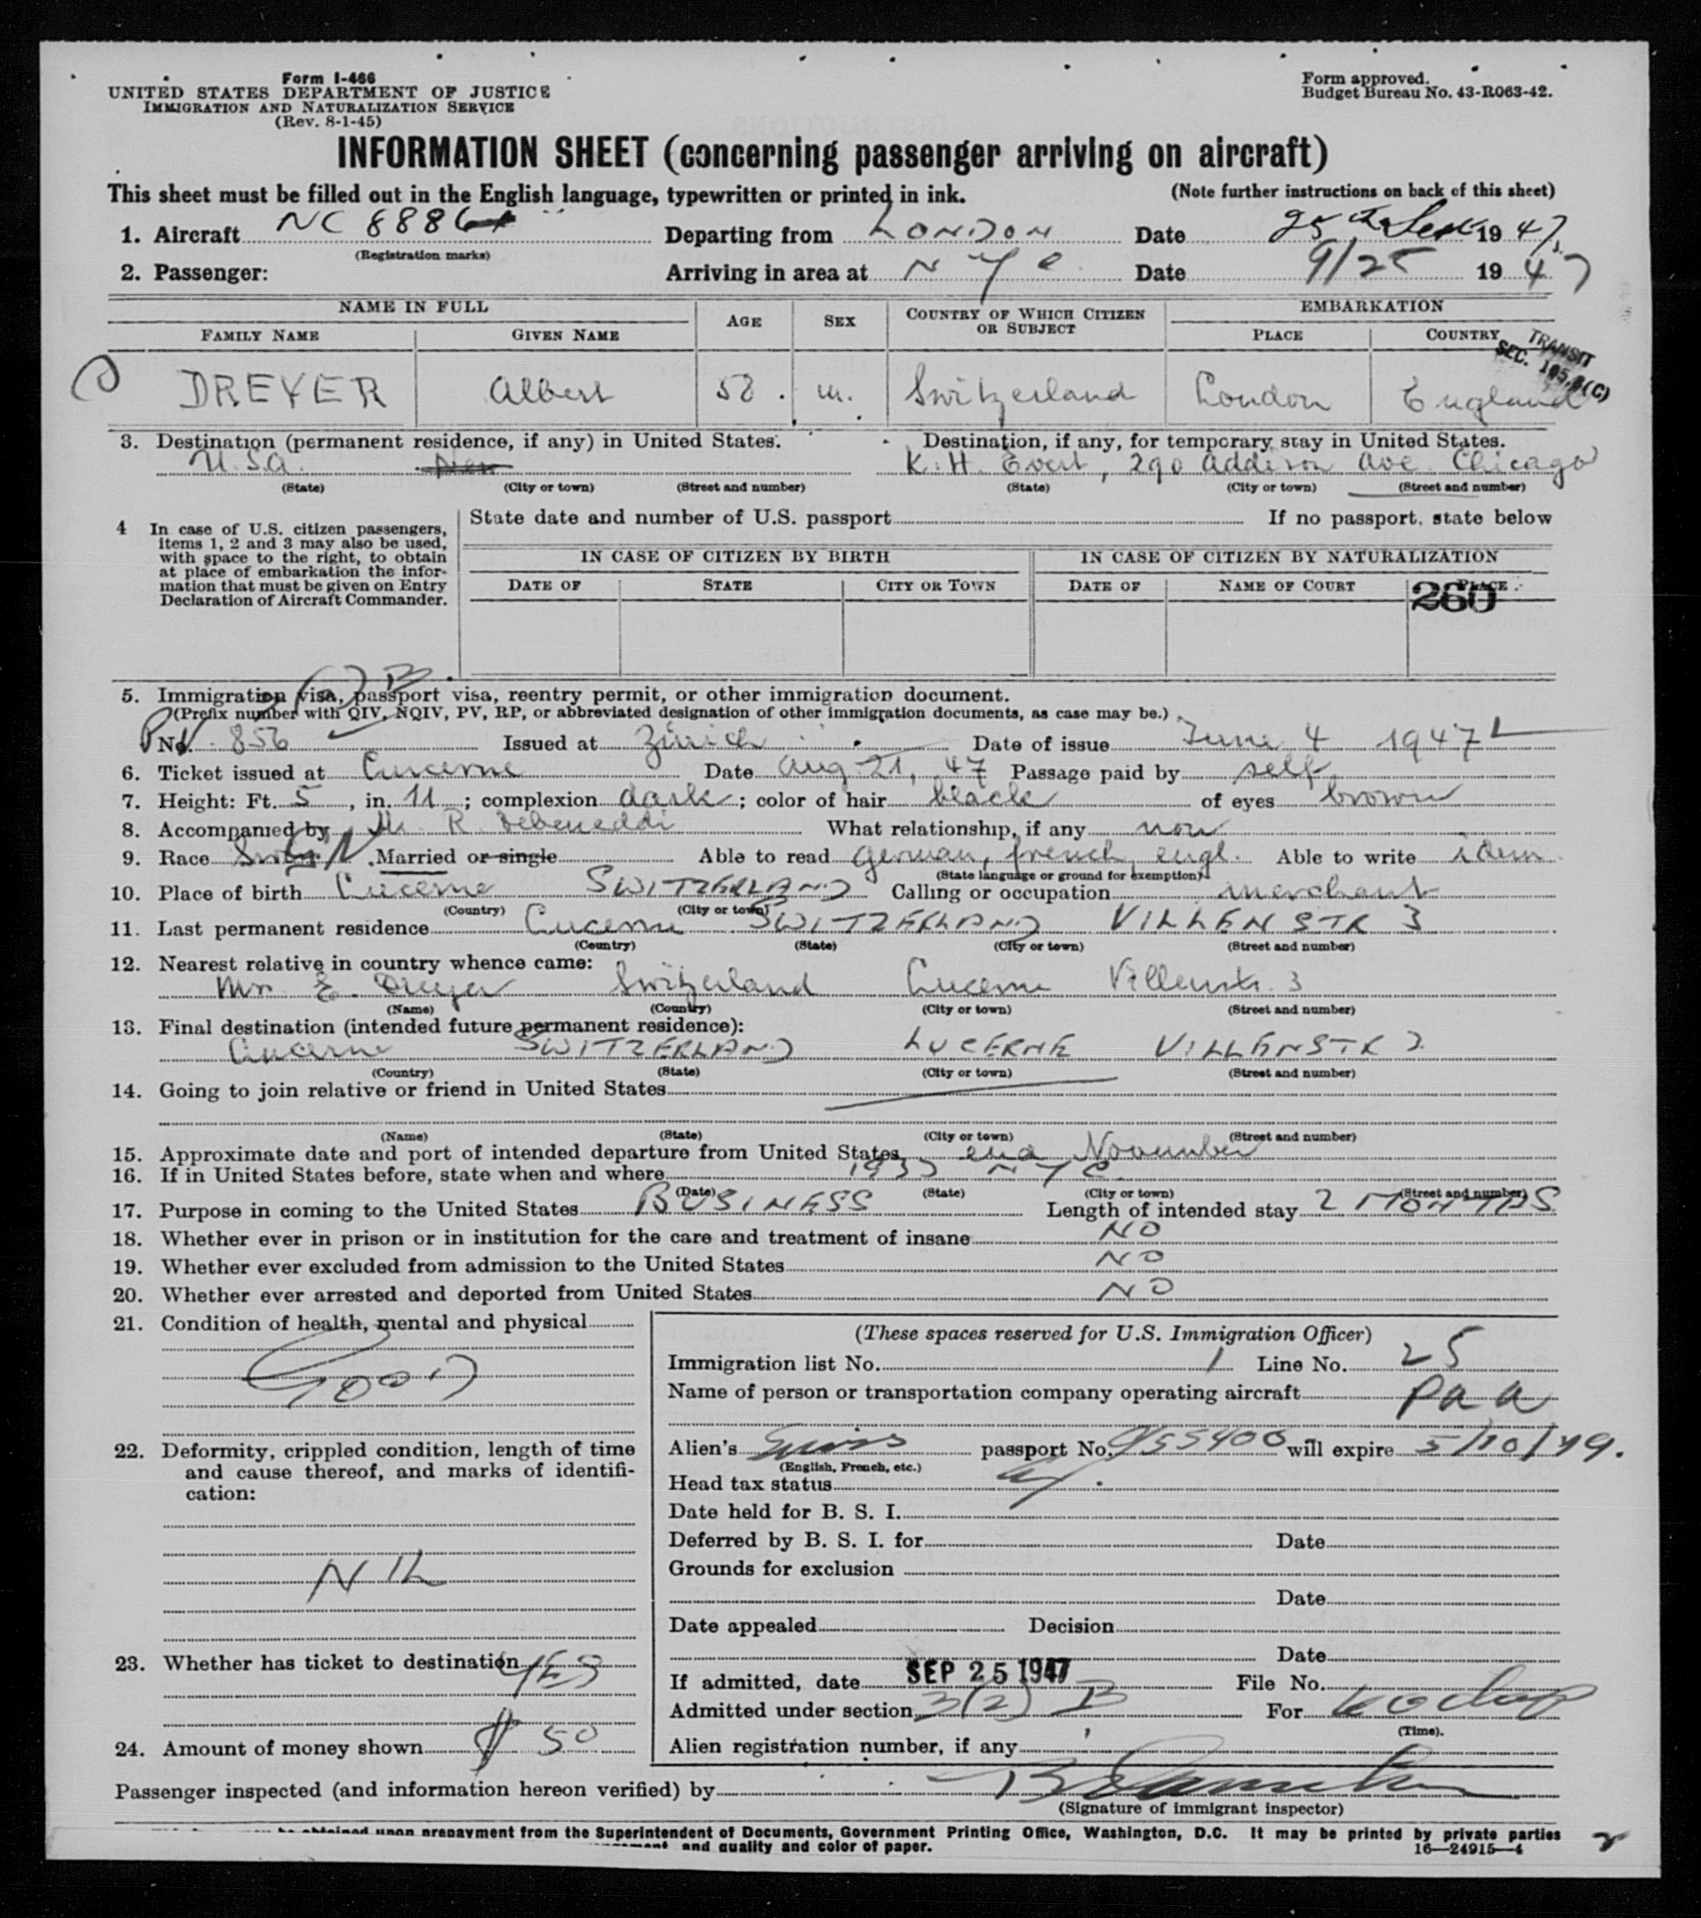 Form I-466
UNITED STATES DEPARTMENT OF JUSTICE
IMMIGRATION AND NATURALIZATION SERVICE
(Rev. 8-1-45)
Form approved.
Budget Bureau No. 43-R063-42.
INFORMATION SHEET (concerning passenger arriving on aircraft)
This sheet must be filled out in the English language, typewritten or printed in ink. (Note further instructions on back of this sheet)
1. Aircraft NC 8886 Departing from LONDON Date 25th Sept 1947
(Registration marks)
2. Passenger: Arriving in area at NYC Date 9/25 1947
NAME IN FULL AGE SEX COUNTRY OF WHICH CITIZEN OR SUBJECT EMBARKATION
FAMILY NAME GIVEN NAME PLACE COUNTRY
TRANSIT
SEC.
DREYER Albert 58. m. Switzerland London England
3. Destination (permanent residence, if any) in United States. Destination, if any, for temporary stay in United States.
U.S.A. New K. H. Evert, 290 Addison Ave. Chicago
(State) (City or town) (Street and number) (State) (City or town) (Street and number)
4 In case of U.S. citizen passengers, items 1, 2 and 3 may also be used, with space to the right, to obtain at place of embarkation the information that must be given on Entry Declaration of Aircraft Commander.
State date and number of U.S. passport If no passport, state below
IN CASE OF CITIZEN BY BIRTH IN CASE OF CITIZEN BY NATURALIZATION
DATE OF STATE CITY OR TOWN DATE OF NAME OF COURT PLACE
260
5. Immigration visa, passport visa, reentry permit, or other immigration document.
(Prefix number with QIV, NQIV, PV, RP, or abbreviated designation of other immigration documents, as case may be.)
PV No. 856 Issued at Zürich Date of issue June 4 1947
6. Ticket issued at Lucerne Date Aug. 21, 47 Passage paid by self
7. Height: Ft. 5, in. 11; complexion dark; color of hair black of eyes brown
8. Accompanied by R. Debeneddi What relationship, if any non
9. Race Married or single Able to read german, french, engl. Able to write idem
(State language or ground for exemption)
10. Place of birth Lucerne SWITZERLAND Calling or occupation merchant
(Country) (City or town)
11. Last permanent residence Lucerne SWITZERLAND VILLENSTR 3
(Country) (State) (City or town) (Street and number)
12. Nearest relative in country whence came:
Mrs E. Dreyer Switzerland Lucerne Villenstr. 3
(Name) (Country) (City or town) (Street and number)
13. Final destination (intended future permanent residence):
Lucerne SWITZERLAND LUCERNE VILLENSTR 3
(Country) (State) (City or town) (Street and number)
14. Going to join relative or friend in United States
(Name) (State) (City or town) (Street and number)
15. Approximate date and port of intended departure from United States end November
16. If in United States before, state when and where NYC
(Date) (State) (City or town) (Street and number)
17. Purpose in coming to the United States BUSINESS Length of intended stay 2 MONTHS
18. Whether ever in prison or in institution for the care and treatment of insane NO
19. Whether ever excluded from admission to the United States NO
20. Whether ever arrested and deported from United States NO
21. Condition of health, mental and physical
GOOD
22. Deformity, crippled condition, length of time and cause thereof, and marks of identification:
NIL
23. Whether has ticket to destination YES
24. Amount of money shown $ 50
(These spaces reserved for U.S. Immigration Officer)
Immigration list No. 1 Line No. 25
Name of person or transportation company operating aircraft PAA
Alien's Swiss passport No. 955400 will expire 5/10/49.
(English, French, etc.)
Head tax status
Date held for B. S. I.
Deferred by B. S. I. for Date
Grounds for exclusion
Date
Date appealed Decision
Date
If admitted, date SEP 25 1947 File No.
Admitted under section 3(2) B For 60 days
(Time).
Alien registration number, if any
Passenger inspected (and information hereon verified) by
(Signature of immigrant inspector)
be obtained upon prepayment from the Superintendent of Documents, Government Printing Office, Washington, D.C. It may be printed by private parties
and quality and color of paper. 16—24915—4